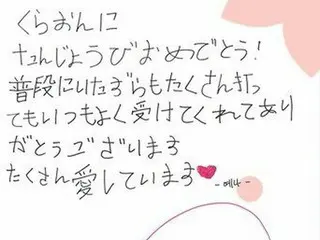 くらおんに
たんじょうびおめでとう!
普段にいたずらもたくさん打っ
てもいつもよく受けてくれてあり
がとうございます
たくさん愛しています♥
-예나-